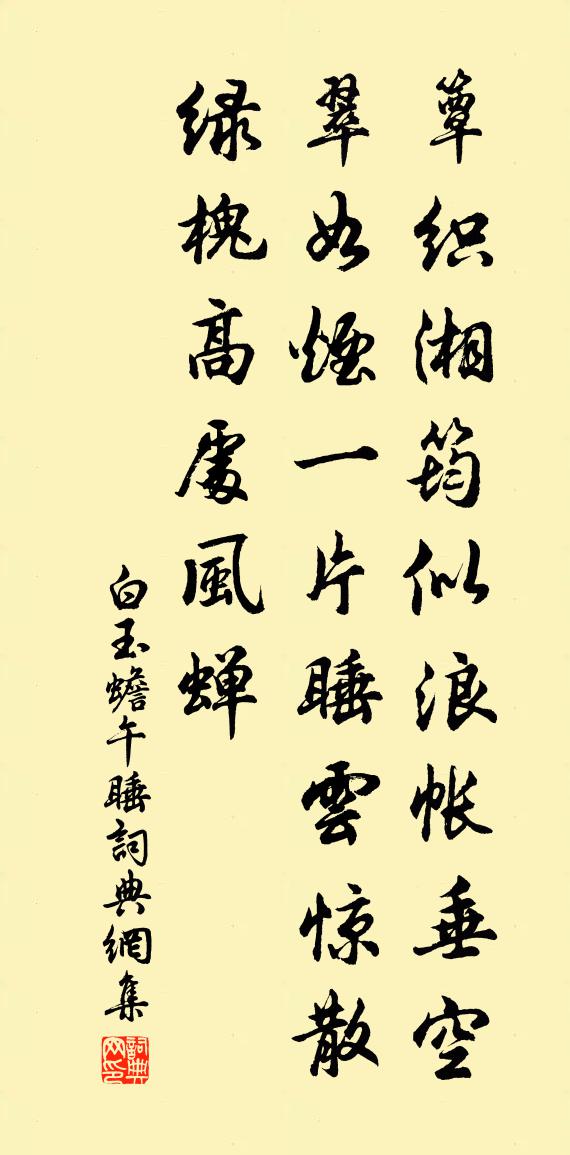 簟织湘筠似浪帐垂空
翠如烟一片睡雲惊散
绿槐高處風蝉
白玉蟾午睡詞典網集
詞典网印